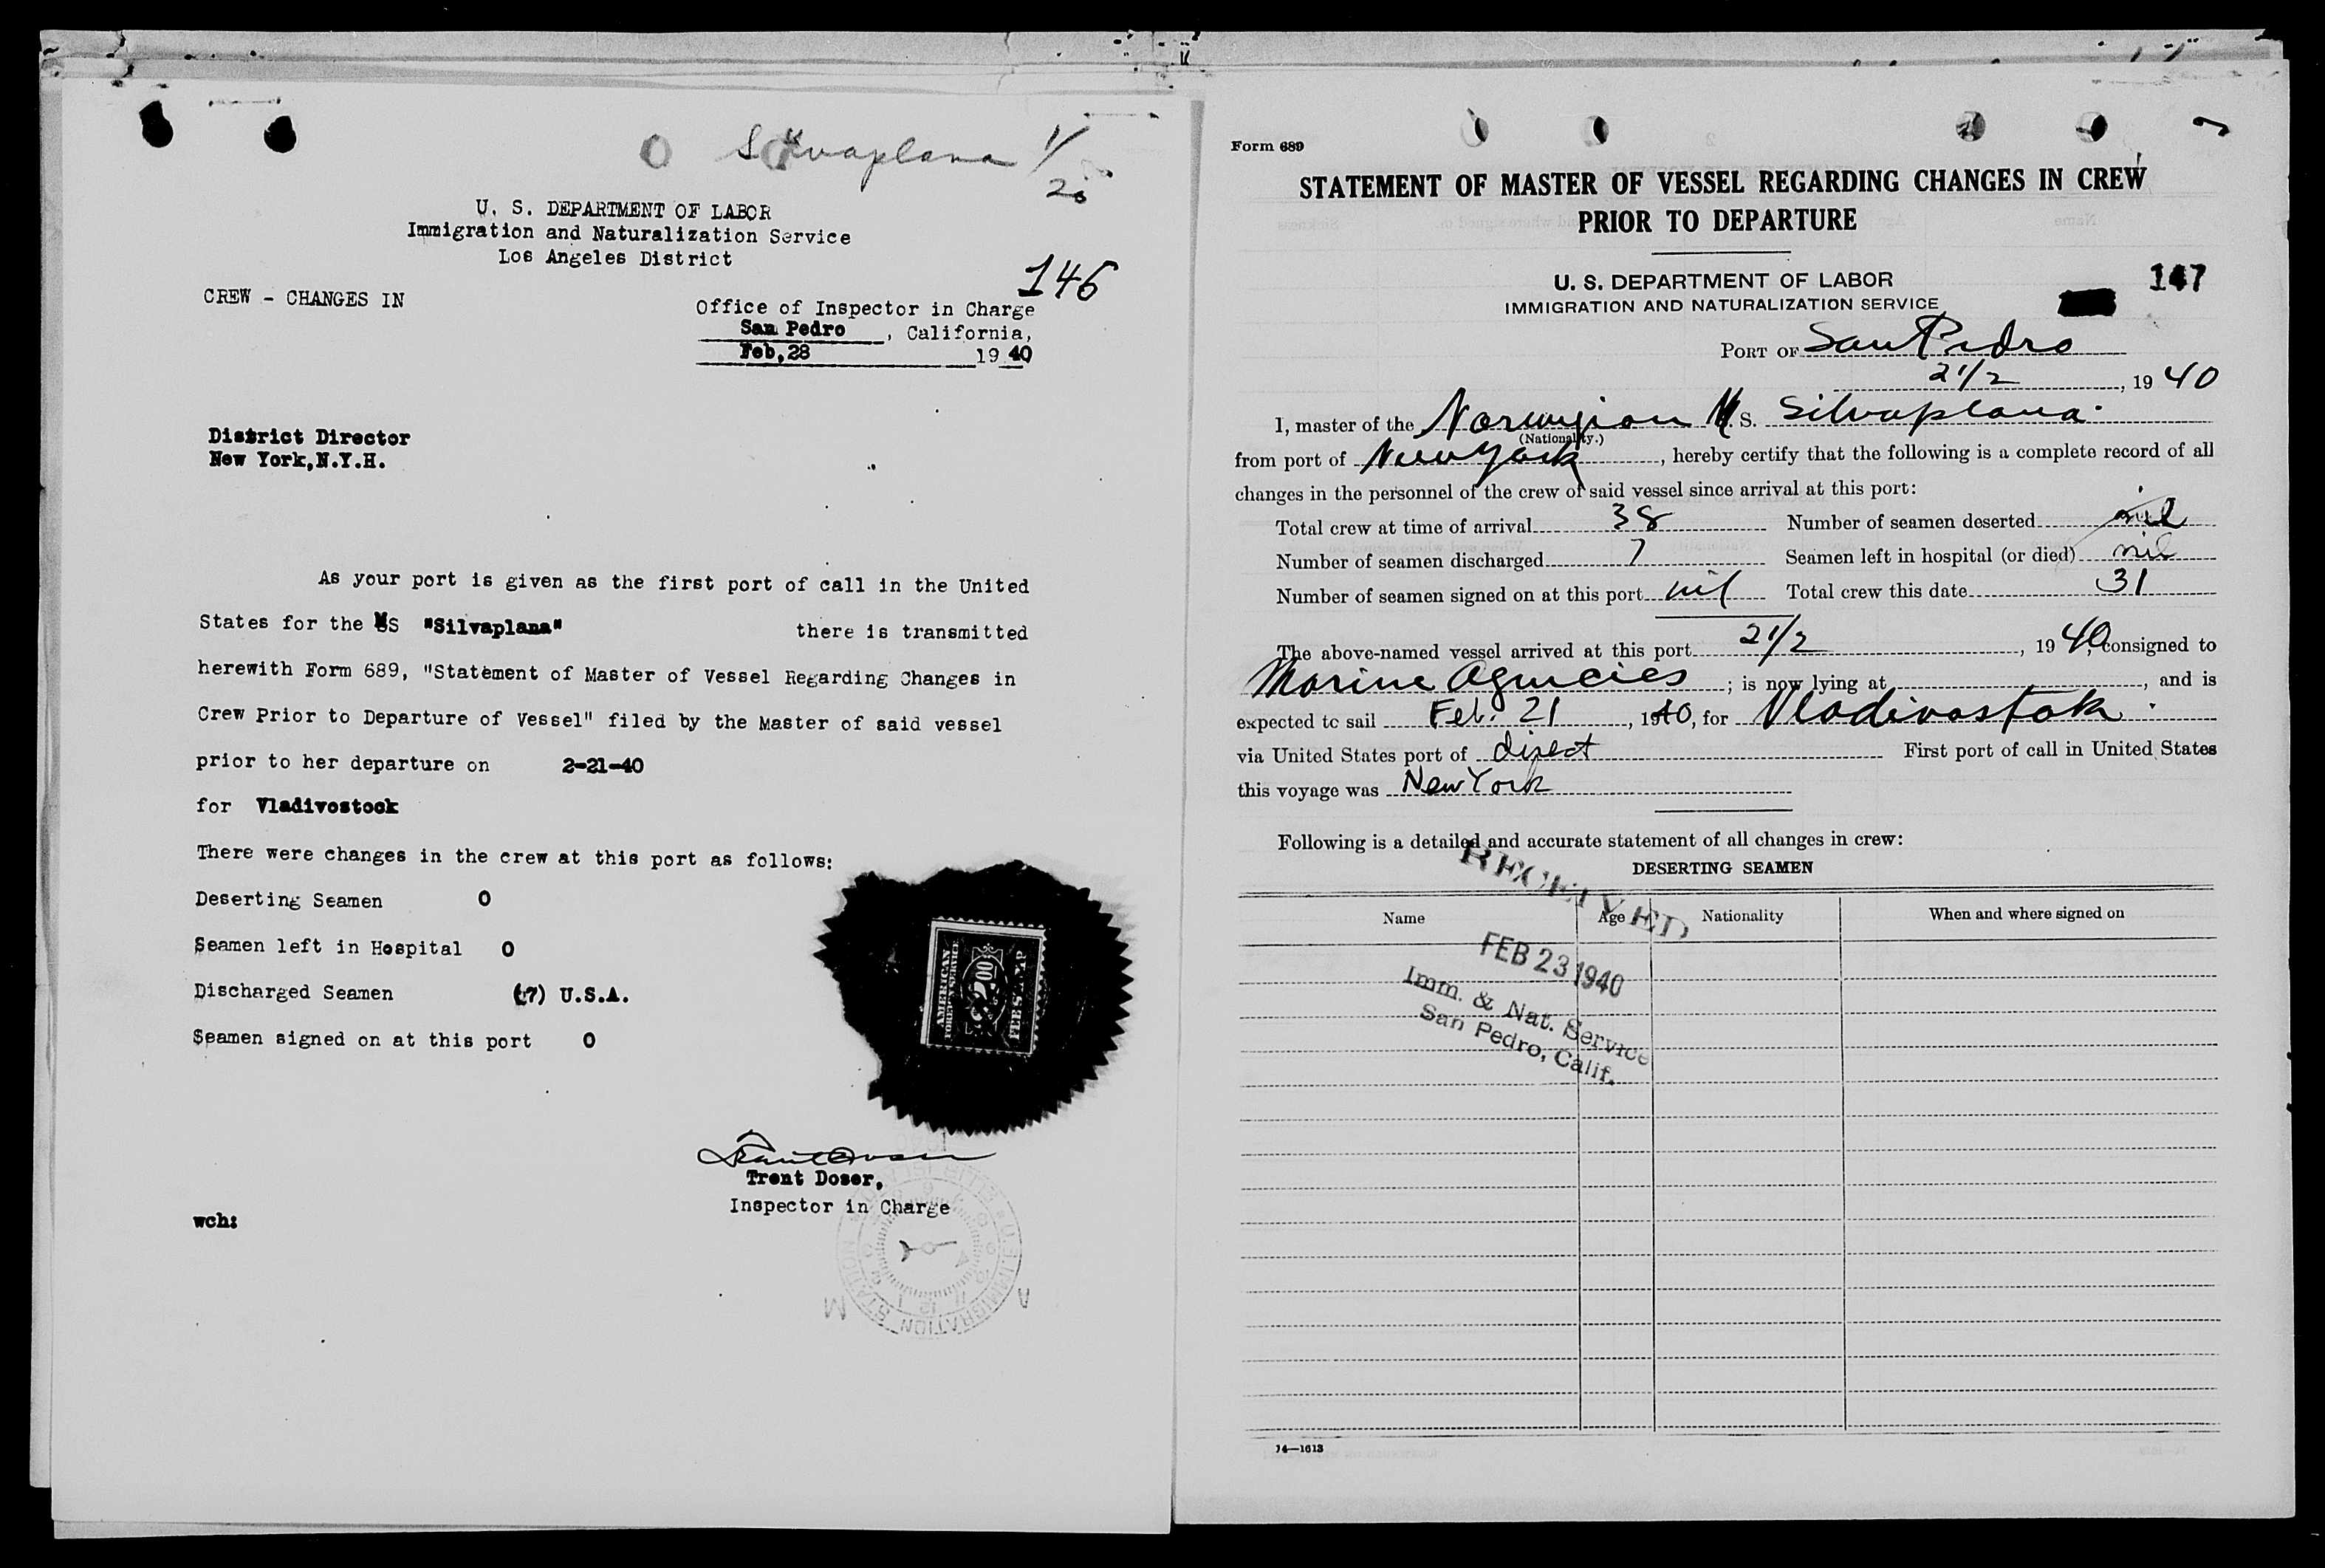 Silvaplana 1/26
U. S. DEPARTMENT OF LABOR
Immigration and Naturalization Service
Los Angeles District
146
CREW - CHANGES IN
Office of Inspector in Charge
San Pedro, California,
Feb,28 1940
District Director
New York,N.Y.H.
As your port is given as the first port of call in the United
States for the MS "Silvaplana" there is transmitted
herewith Form 689, "Statement of Master of Vessel Regarding Changes in
Crew Prior to Departure of Vessel" filed by the Master of said vessel
prior to her departure on 2-21-40
for Vladivostock
There were changes in the crew at this port as follows:
Deserting Seamen 0
Seamen left in Hospital 0
Discharged Seamen (7) U.S.A.
Seamen signed on at this port 0
AMERICAN
FOREIGN SERVICE
$2.00
FEE STAMP
Trent Doser,
Inspector in Charge
wch:
Form 689
STATEMENT OF MASTER OF VESSEL REGARDING CHANGES IN CREW
PRIOR TO DEPARTURE
U. S. DEPARTMENT OF LABOR
IMMIGRATION AND NATURALIZATION SERVICE
147
PORT OF San Pedro
21/2, 1940
I, master of the Norwegian M. S. Silvaplana
(Nationality.)
from port of New York, hereby certify that the following is a complete record of all
changes in the personnel of the crew of said vessel since arrival at this port:
Total crew at time of arrival 38 Number of seamen deserted nil
Number of seamen discharged 7 Seamen left in hospital (or died) nil
Number of seamen signed on at this port nil Total crew this date 31
The above-named vessel arrived at this port 21/2, 1940, consigned to
Marine Agencies; is now lying at , and is
expected to sail Feb. 21, 1940, for Vladivostok
via United States port of direct First port of call in United States
this voyage was New York
Following is a detailed and accurate statement of all changes in crew:
DESERTING SEAMEN
Name Age Nationality When and where signed on
RECEIVED
FEB 23 1940
Imm. & Nat. Service
San Pedro, Calif.
14—1613